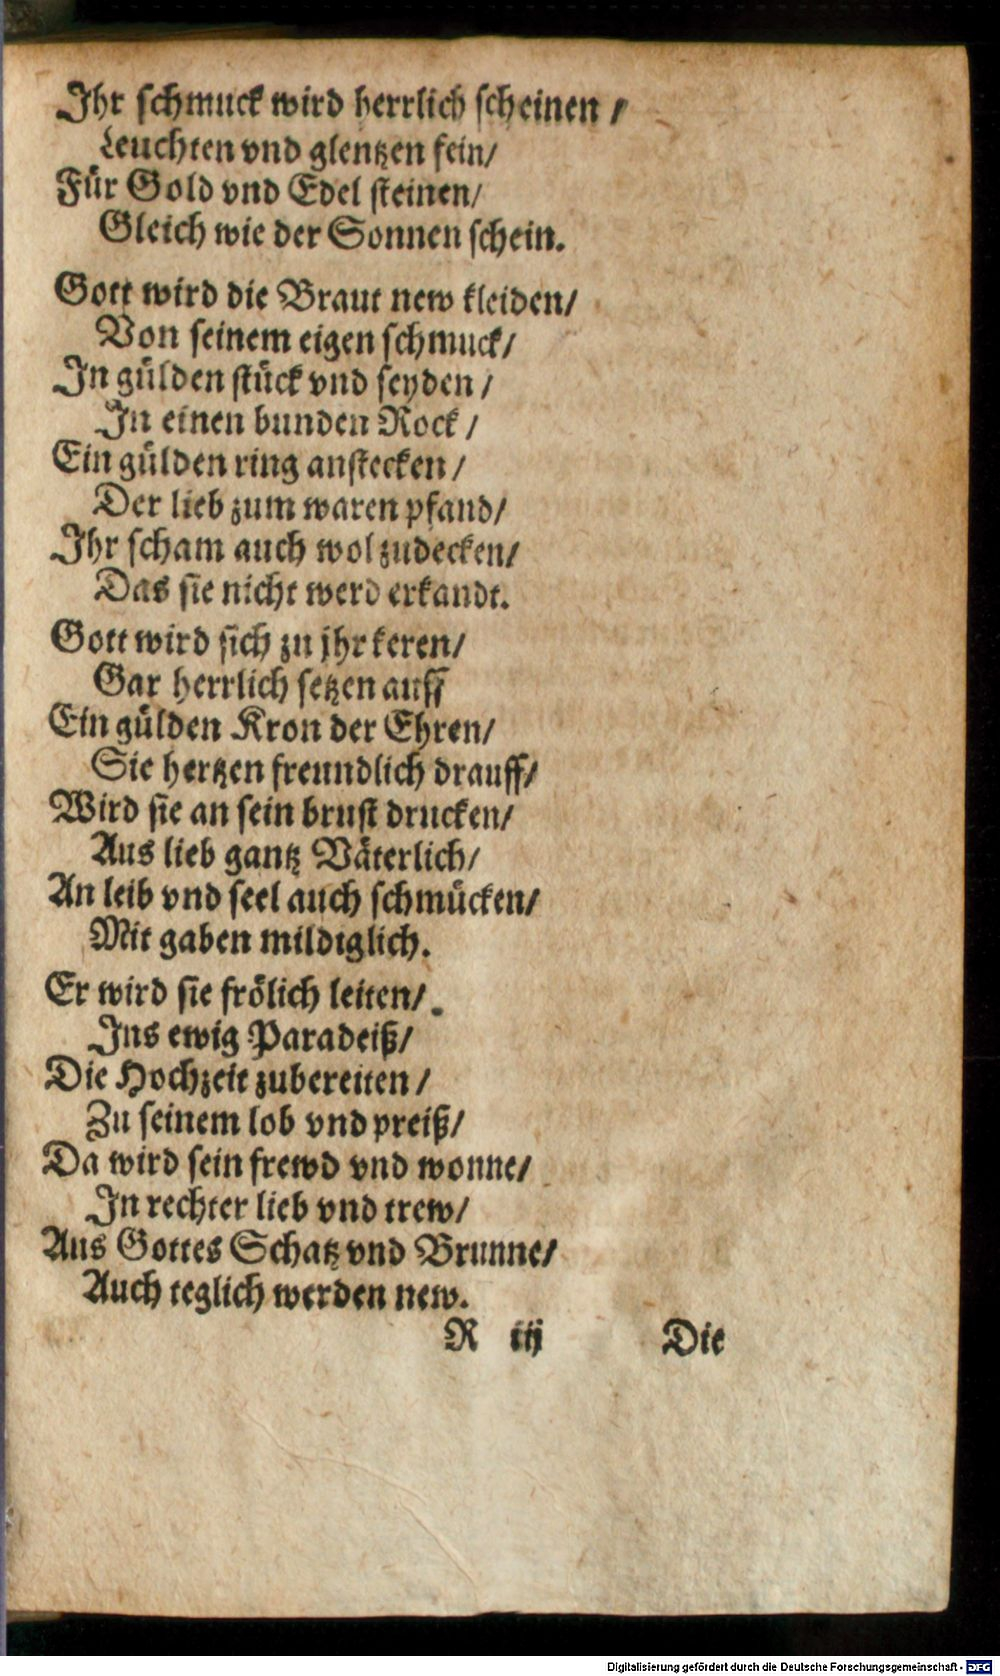 Ihr schmuck wird herrlich scheinen /
Leuchten vnd glentzen fein/
Für Gold vnd Edel steinen/
Gleich wie der Sonnen schein.
Gott wird die Braut new kleiden/
Von seinem eigen schmuck/
In gülden stück vnd seyden /
In einen bunden Rock /
Ein gülden ring anstecken /
Der lieb zum waren pfand/
Ihr scham auch wol zudecken/
Das sie nicht werd erkandt.
Gott wird sich zu jhr keren/
Gar herrlich setzen auff
Ein gülden Kron der Ehren/
Sie hertzen freundlich drauff/
Wird sie an sein brust drucken/
Aus lieb gantz Väterlich/
An leib vnd seel auch schmücken/
Mit gaben mildiglich.
Er wird sie frölich leiten/
Ins ewig Paradeiß/
Die Hochzeit zubereiten /
Zu seinem lob vnd preiß/
Da wird sein frewd vnd wonne/
In rechter lieb vnd trew/
Aus Gottes Schatz vnd Brunne/
Auch teglich werden new.
R iij Die
Digitalisierung gefördert durch die Deutsche Forschungsgemeinschaft - DFG